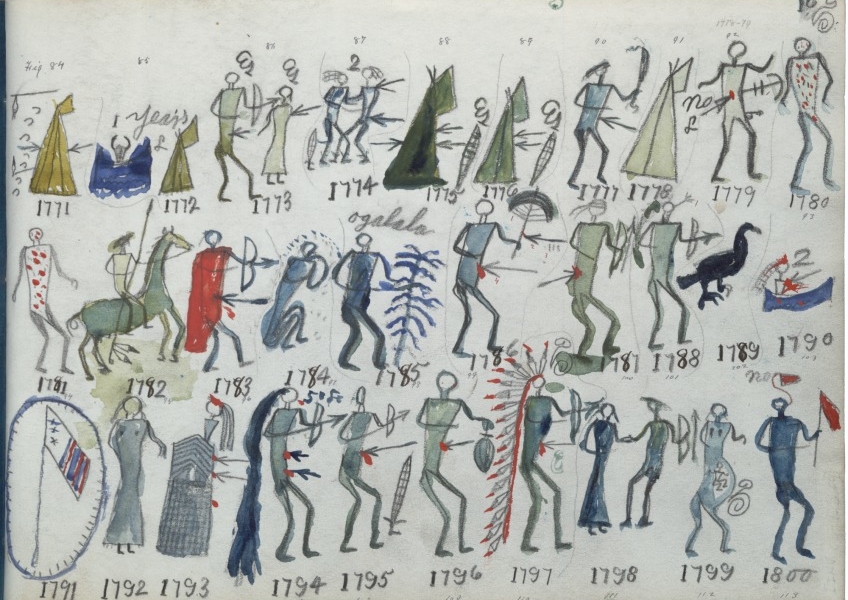 Fig 84 85 86 87 88 89 90 91 92 1778-79
1 years 2 no
1771 1772 1773 1774 1775 1776 1777 1778 1779 1780
ogalala 2
1781 1782 1783 1784 1785 1786 1787 1788 1789 1790
no
1791 1792 1793 1794 1795 1796 1797 1798 1799 1800